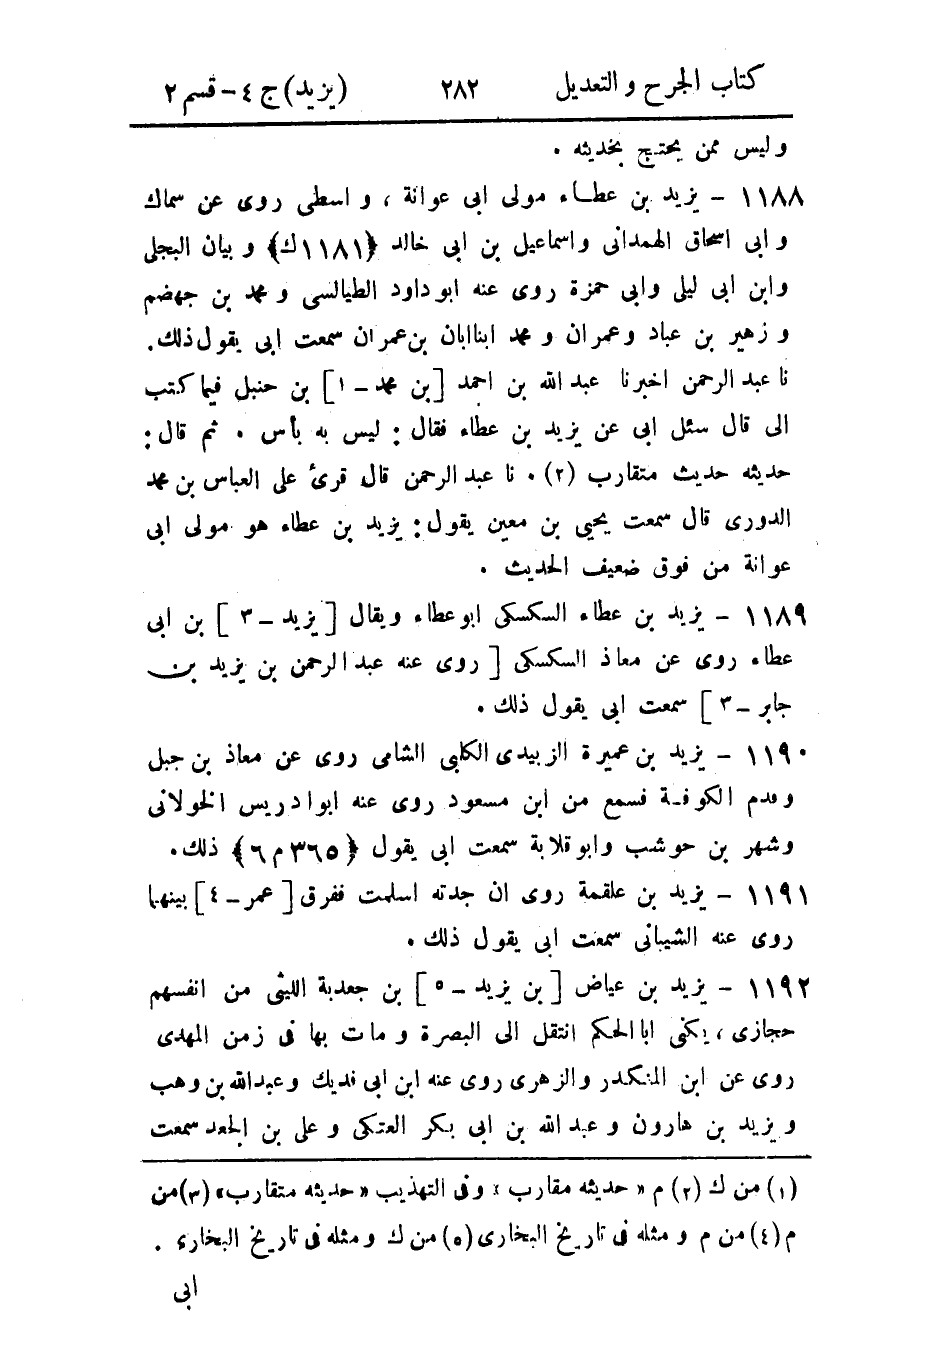 كتاب الجرح و التعديل ٢٨٢ (يزيد) ج ٤ - قسم ٢
و ليس ممن يحتج بحديثه .
١١٨٨ - يزيد بن عطاء مولى ابى عوانة ، و اسطى روى عن سماك
و ابى اسحاق الهمدانى و اسماعيل بن ابى خالد ﴿١١٨١ك﴾ و بيان البجلى
وابن ابى ليلى وابى حمزة روى عنه ابو داود الطيالسى و محمد بن جهضم
و زهير بن عباد وعمران و محمد ابنا ابان بن عمران سمعت ابى يقول ذلك.
نا عبد الرحمن اخبرنا عبد الله بن احمد [بن محمد - ١] بن حنبل فيما كتب
الى قال سئل ابى عن يزيد بن عطاء فقال : ليس به بأس . ثم قال :
حديثه حديث متقارب (٢) . نا عبد الرحمن قال قرئ على العباس بن محمد
الدورى قال سمعت يحيى بن معين يقول : يزيد بن عطاء هو مولى ابى
عوانة من فوق ضعيف الحديث .
١١٨٩ - يزيد بن عطاء السكسكى ابو عطاء ويقال [يزيد - ٣] بن ابى
عطاء روى عن معاذ السكسكى [روى عنه عبد الرحمن بن يزيد بن
جابر - ٣] سمعت ابى يقول ذلك .
١١٩٠ - يزيد بن عميرة الزبيدى الكلبى الشامى روى عن معاذ بن جبل
وقدم الكوفة فسمع من ابن مسعود روى عنه ابو ادريس الخولانى
وشهر بن حوشب وابو قلابة سمعت ابى يقول ﴿٣٦٥م٦﴾ ذلك.
١١٩١ - يزيد بن علقمة روى ان جدته اسلمت ففرق [عمر - ٤] بينهما
روى عنه الشيبانى سمعت ابى يقول ذلك .
١١٩٢ - يزيد بن عياض [بن يزيد - ٥] بن جعدبة الليثى من انفسهم
حجازى ، يكنى ابا الحكم انتقل الى البصرة و مات بها فى زمن المهدى
روى عن ابن المنكدر والزهرى روى عنه ابن ابى فديك وعبد الله بن وهب
و يزيد بن هارون و عبد الله بن ابى بكر العتكى و على بن الجعد سمعت
(١) من ك (٢) م « حديثه مقارب » وفى التهذيب « حديثه متقارب» (٣) من
م (٤) من م و مثله فى تاريخ البخارى (٥) من ك و مثله فى تاريخ البخارى .
ابى